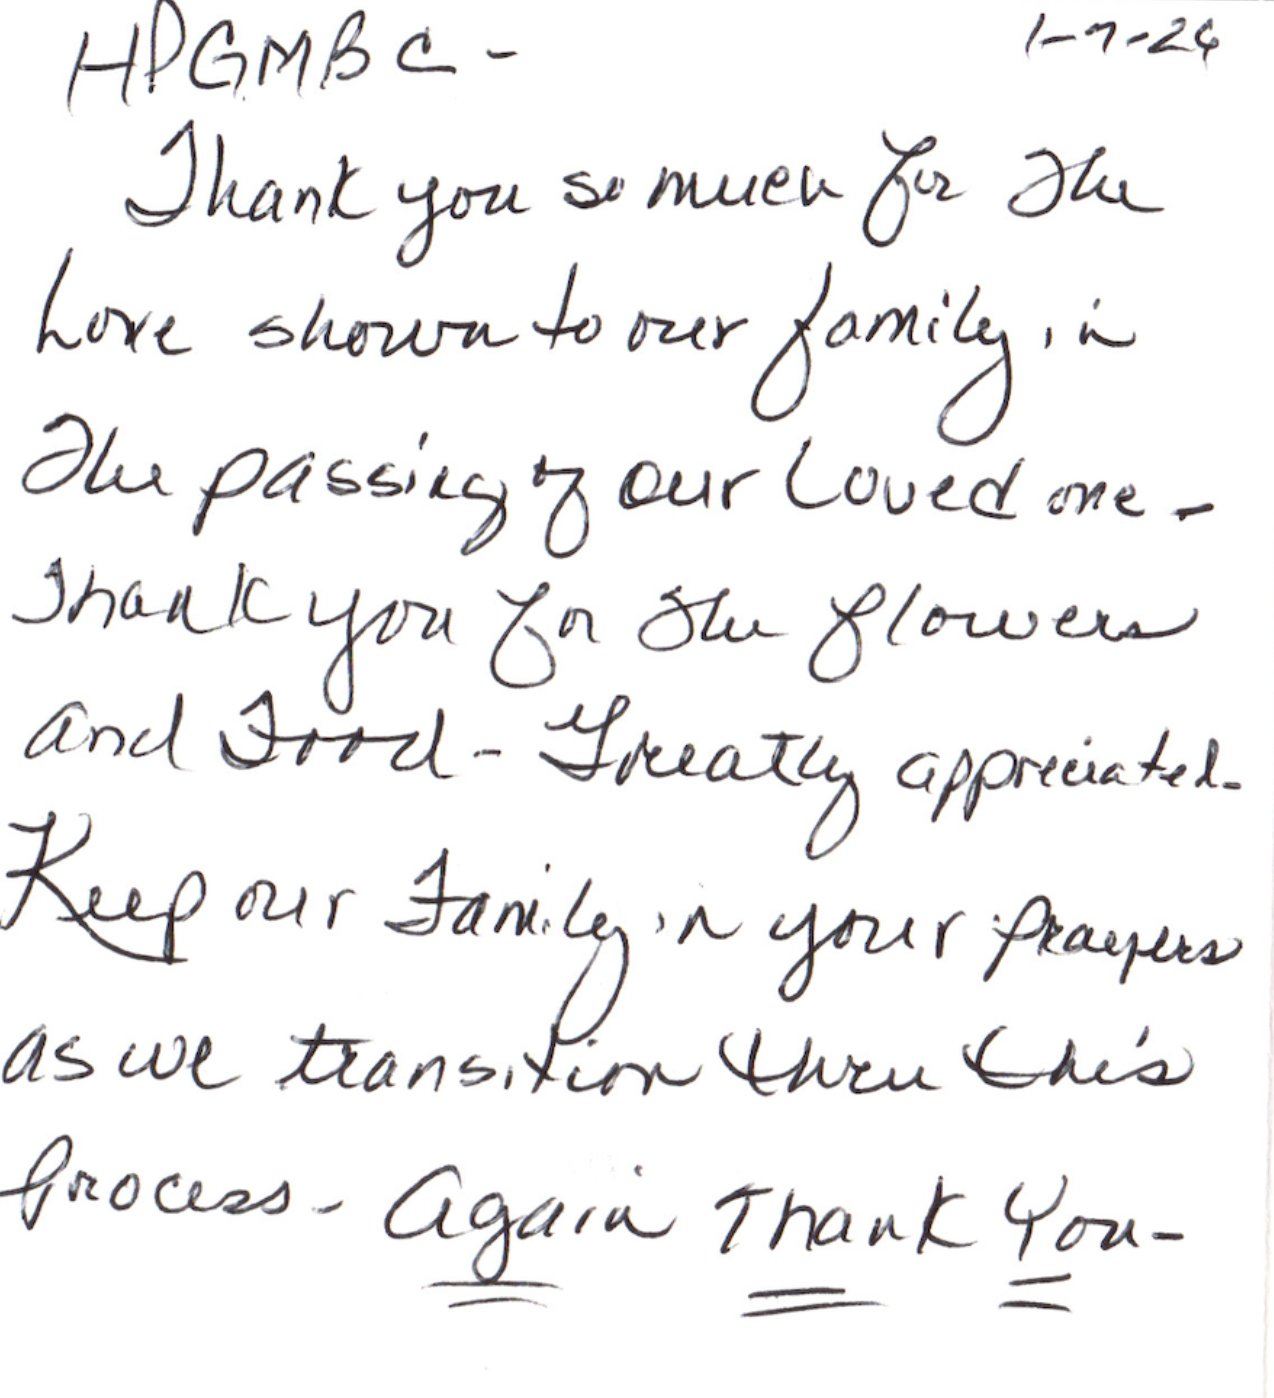 HPGMBC - 1-7-26
Thank you so much for the
Love shown to our family, in
the passing of our Loved one -
Thank you for the flowers
and Food - Greatly appreciated -
Keep our Family in your prayers
as we transition thru this
Process - Again Thank You -